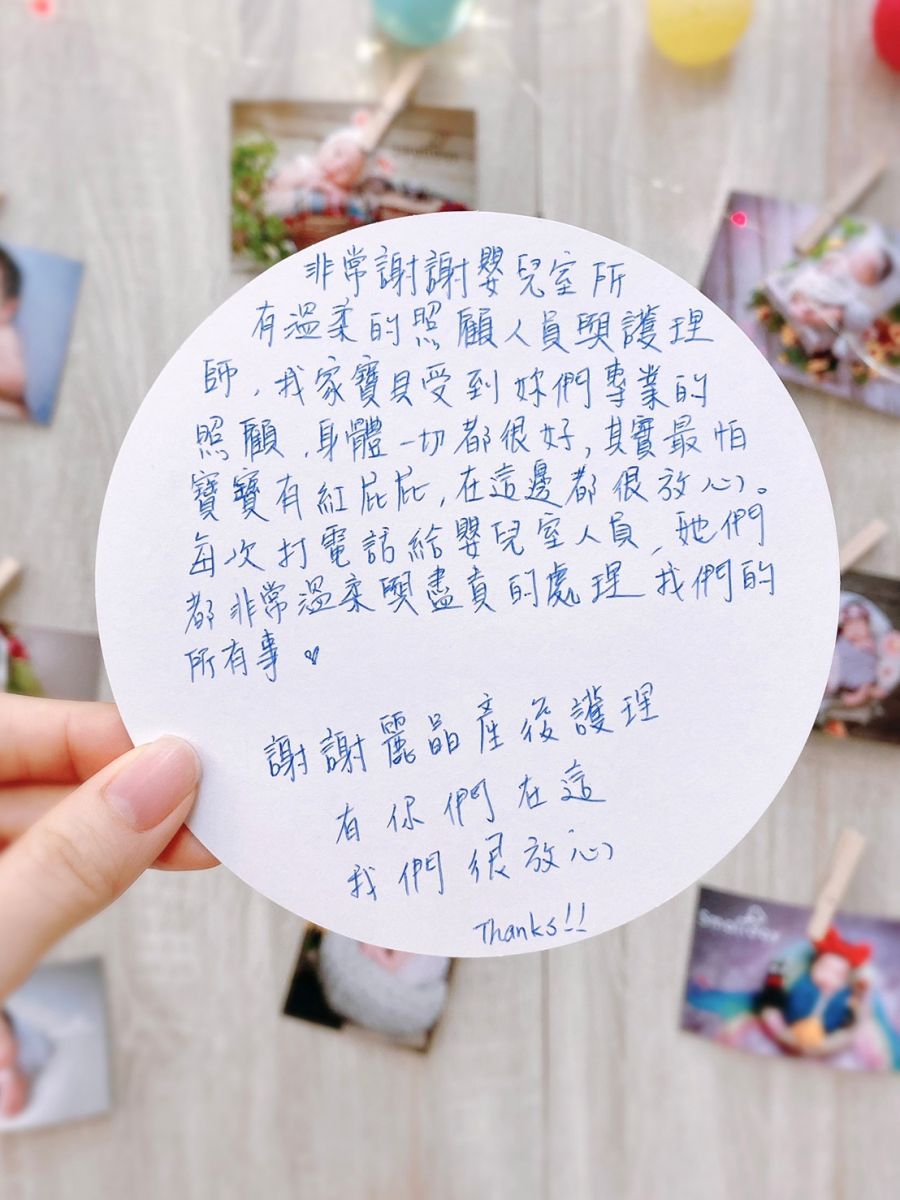 非常謝謝嬰兒室所
有溫柔的照顧人員與護理
師，我家寶貝受到妳們專業的
照顧，身體一切都很好，其實最怕
寶寶有紅屁屁，在這邊都很放心。
每次打電話給嬰兒室人員，她們
都非常溫柔與盡責的處理我們的
所有事♡
謝謝麗晶產後護理
有你們在這
我們很放心
Thanks!!